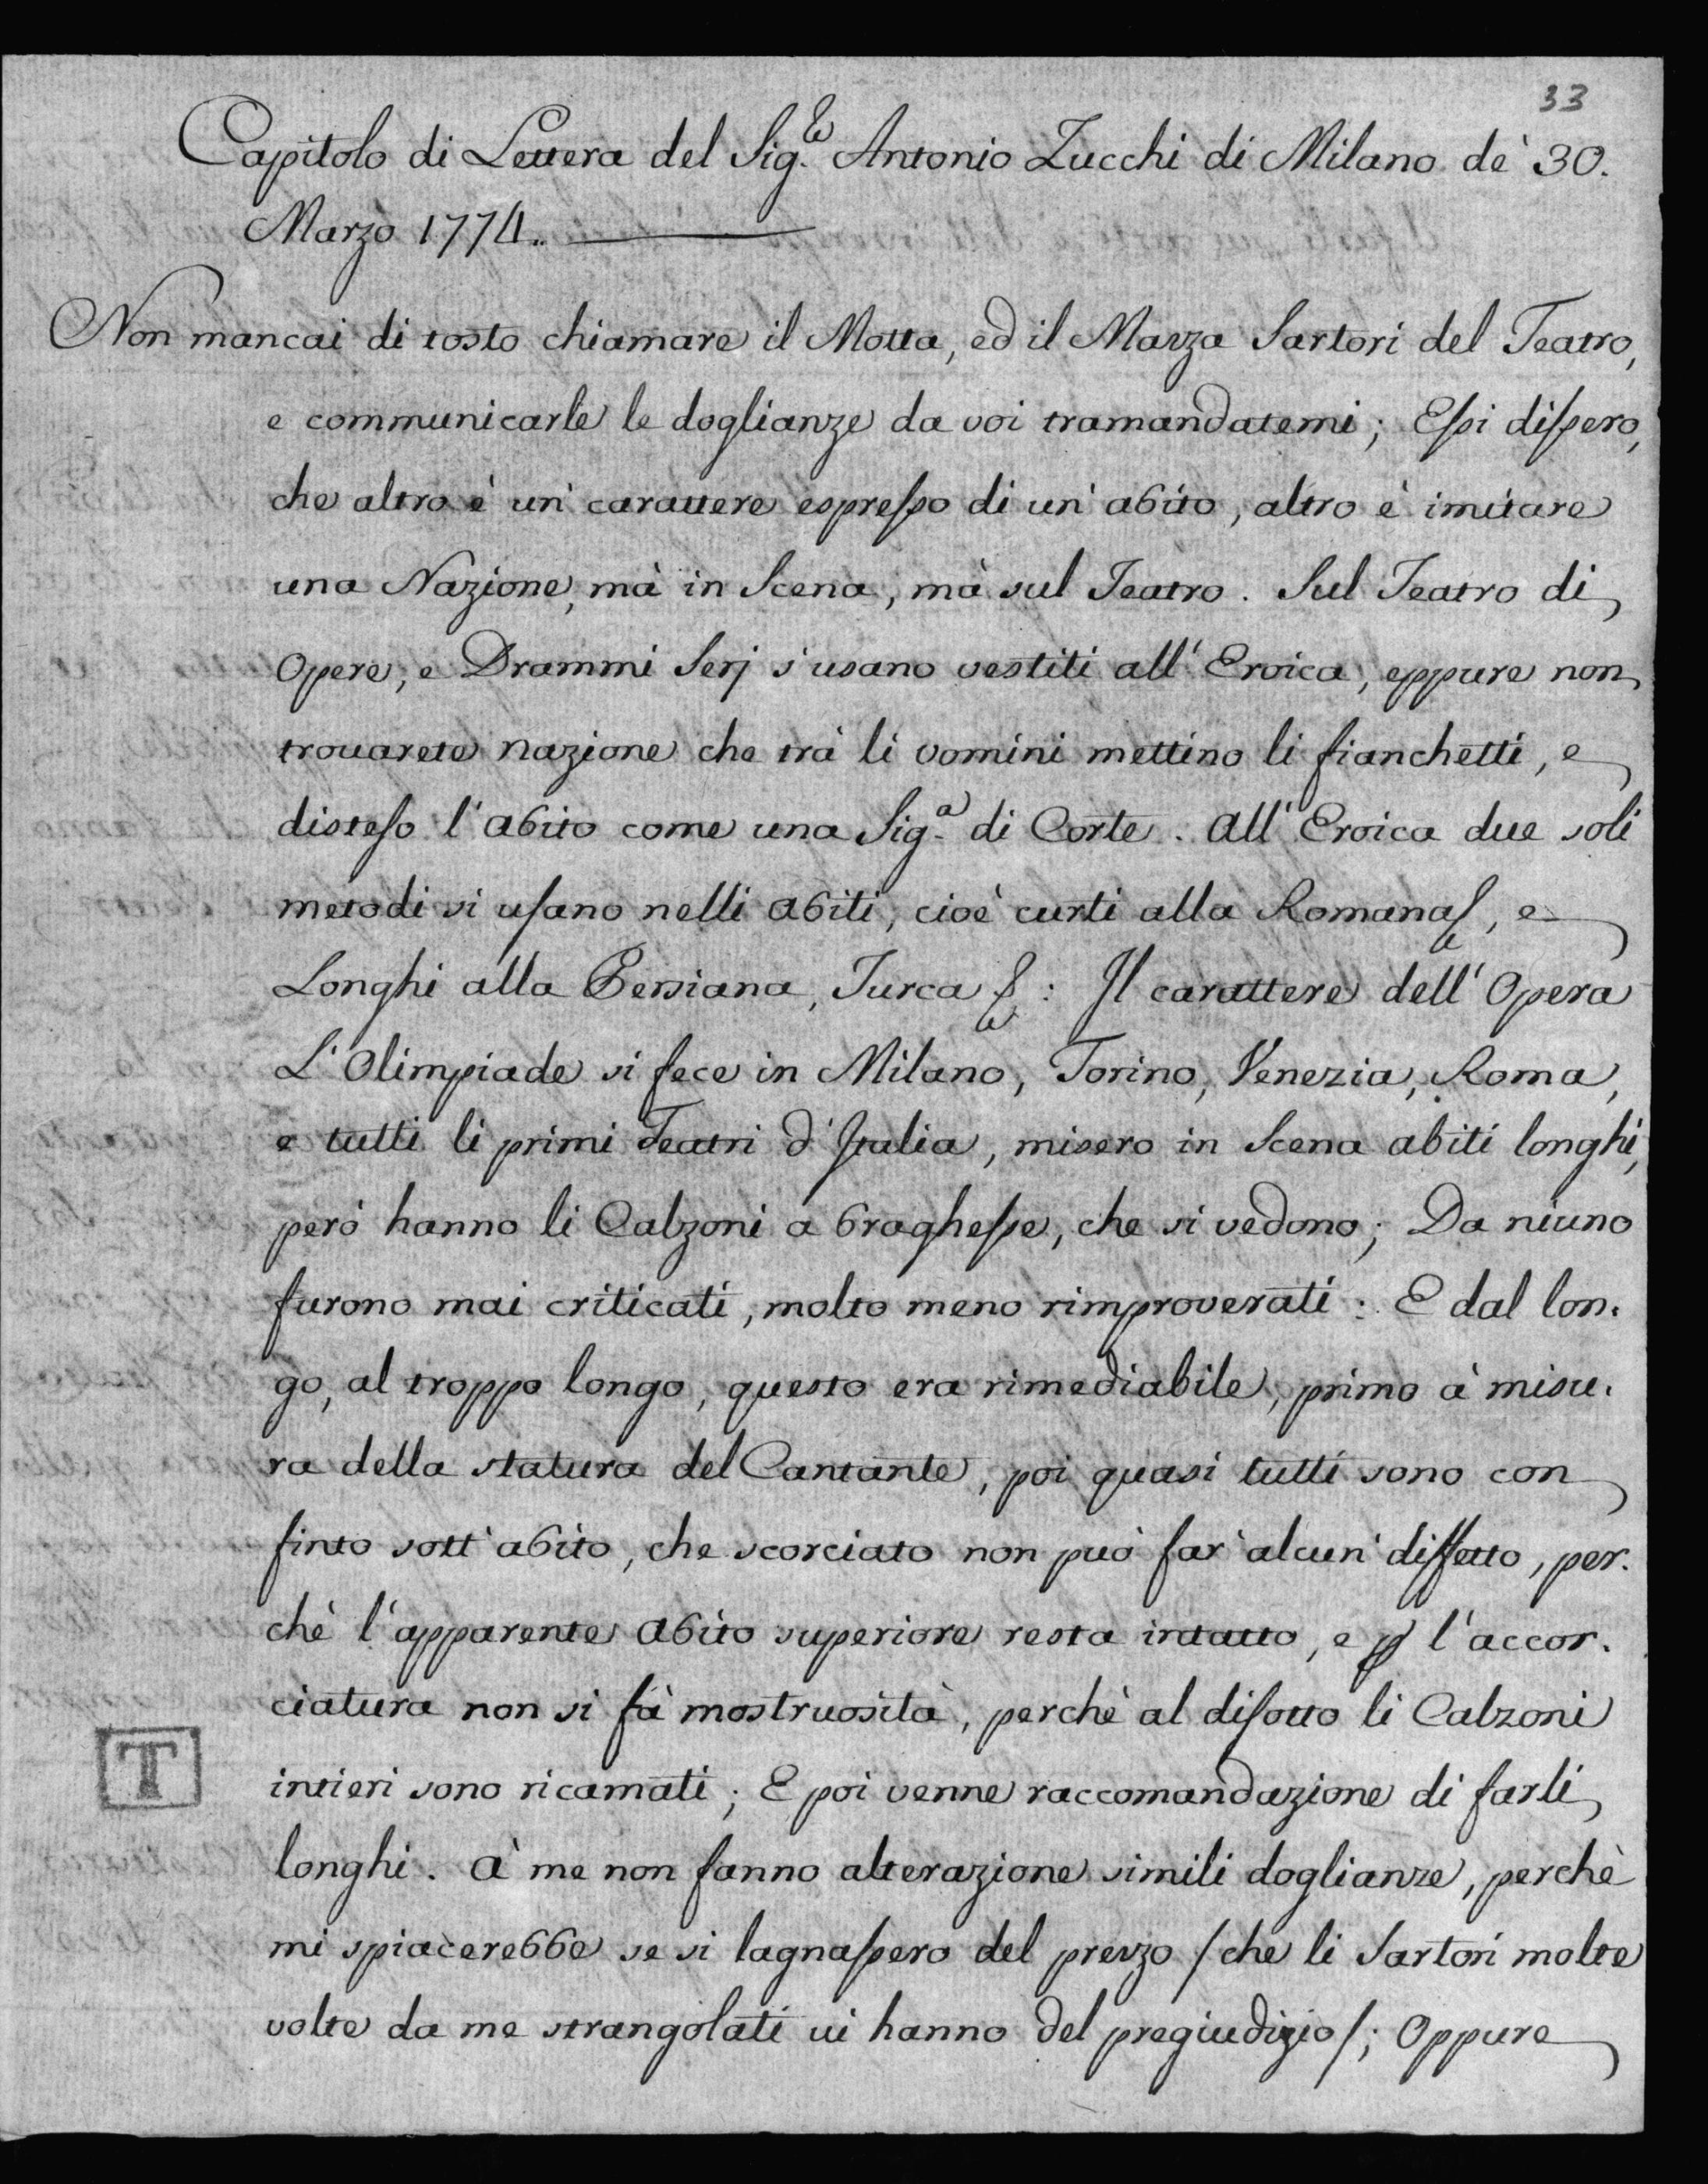 33
Capitolo di Lettera del Sig.re Antonio Zucchi di Milano de' 30.
Marzo 1774.
Non mancai di tosto chiamare il Motta, ed il Mazza Sartori del Teatro,
e communicarle le doglianze da voi tramandatemi; Essi dissero,
che altro è un' carattere espresso di un' abito, altro è imitare
una Nazione, mà in Scena, mà sul Teatro. Sul Teatro di
Opere, e Drammi Serj s'usano vestiti all' Eroica, eppure non
trovarete nazione che trà li vomini mettino li fianchetti, e
disteso l'abito come una Sig.a di Corte. All' Eroica due soli
metodi si usano nelli abiti, cioè curti alla Romana, e
Longhi alla Persiana, Turca : Il carattere dell' Opera
L'Olimpiade si fece in Milano, Torino, Venezia, Roma,
e tutti li primi Teatri d'Italia, misero in Scena abiti longhi,
però hanno li Calzoni a braghesse, che si vedono; Da niuno
furono mai criticati, molto meno rimproverati: E dal lon.
go, al troppo longo, questo era rimediabile, primo à misu.
ra della statura del Cantante, poi quasi tutti sono con
finto sott'abito, che scorciato non può far' alcun' diffetto, per.
chè l'apparente abito superiore resta intatto, e p l'accor.
ciatura non si fà mostruosità, perchè al disotto li Calzoni
intieri sono ricamati; E poi venne raccomandazione di farli
longhi. A' me non fanno alterazione simili doglianze, perchè
mi spiacerebbe se si lagnassero del prezzo / che li Sartori molte
volte da me strangolati vi hanno del pregiudizio /; Oppure
T